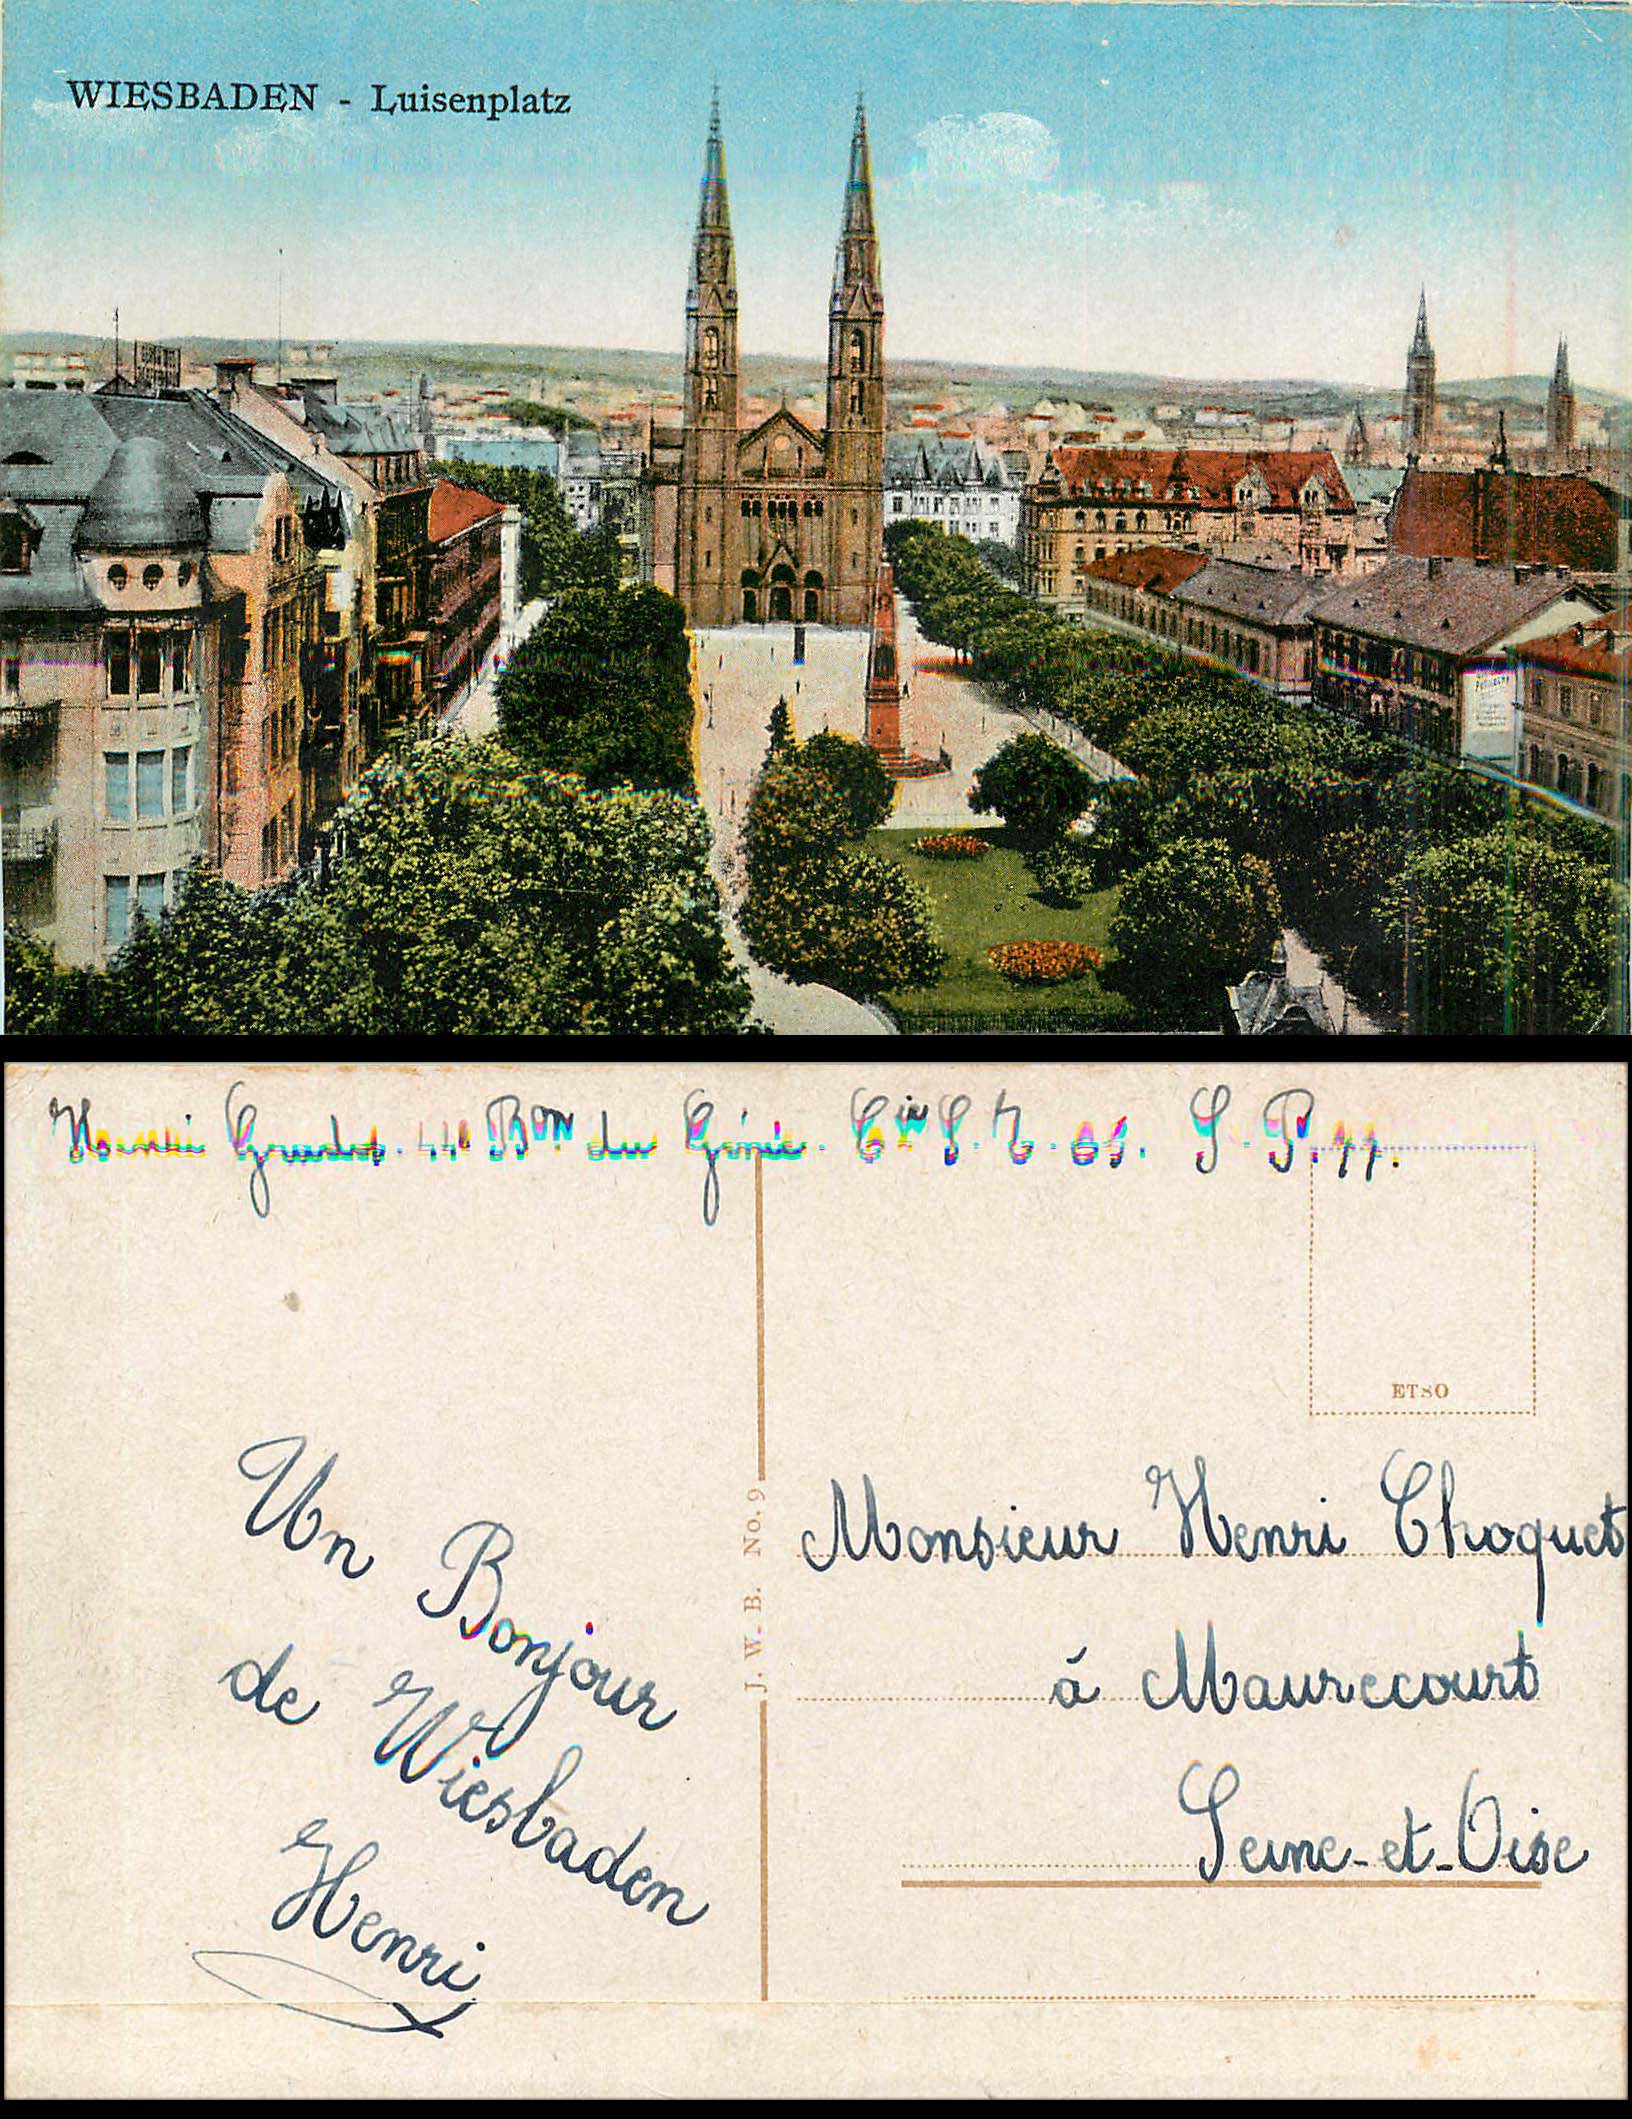 WIESBADEN - Luisenplatz
Henri 44e Bon du Génie. Cie S. P. 77.
ETSO
J. W. B. No. 9
Un Bonjour
de Wiesbaden
Henri
Monsieur Henri Choquet
á Maurecourt
Seine-et-Oise